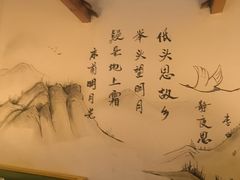 床前明月光
疑是地上霜
举头望明月
低头思故乡
静夜思
李